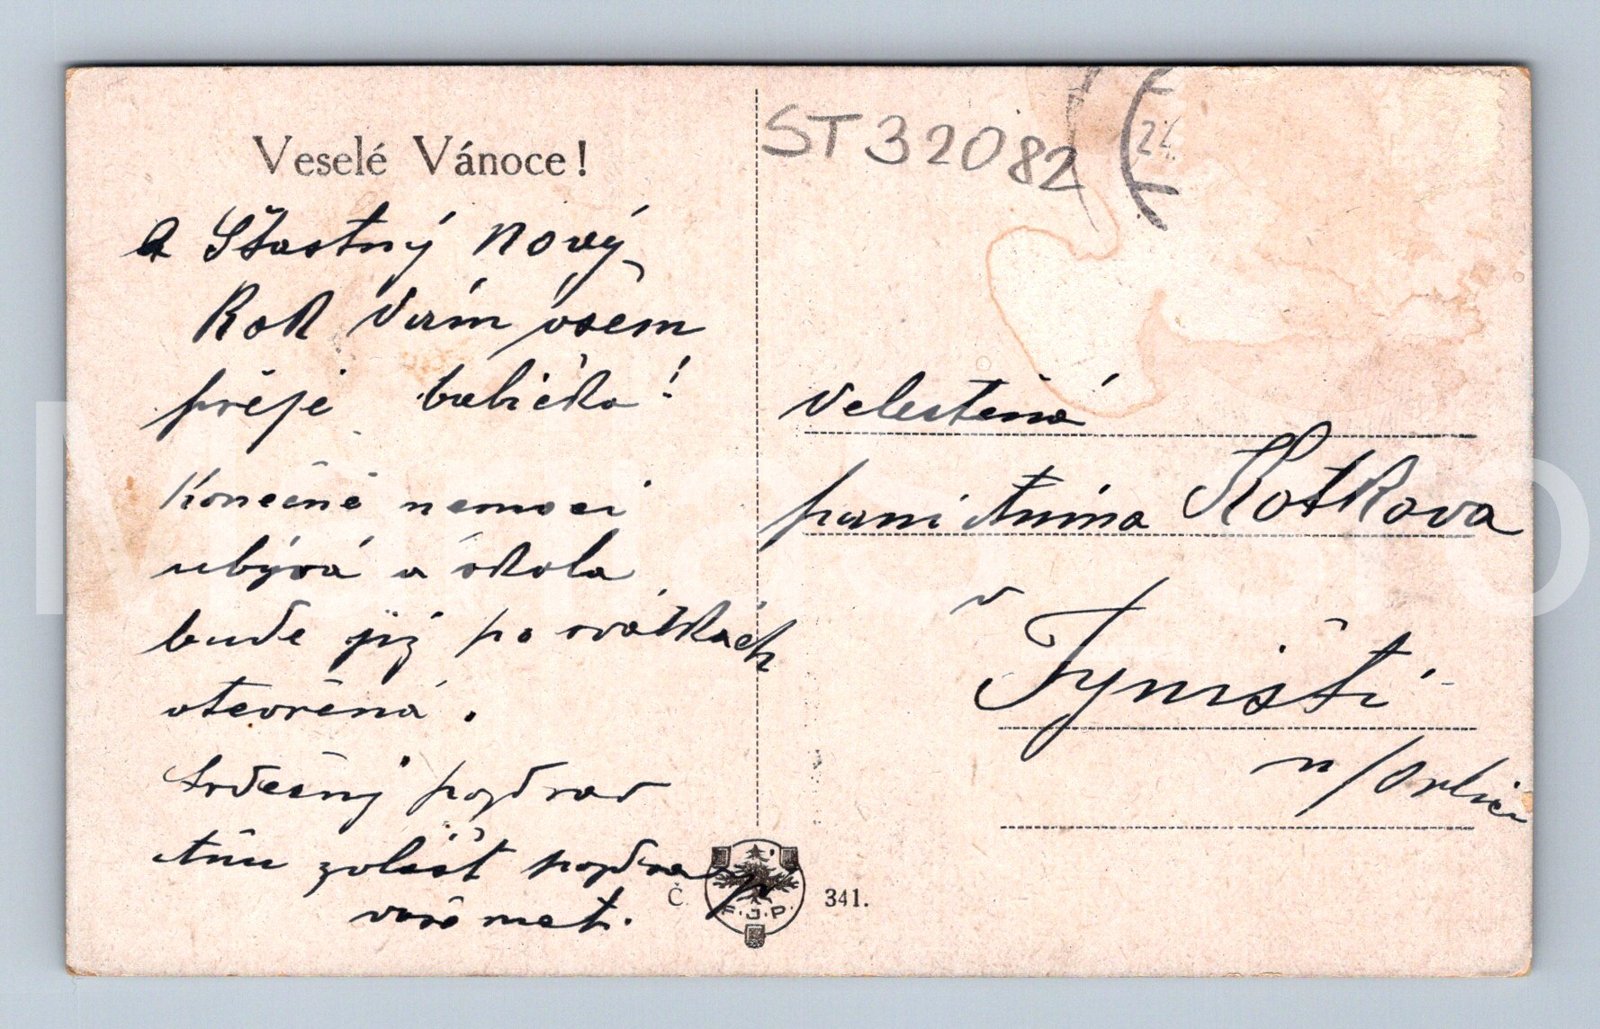 Veselé Vánoce!
a Šťastný Nový
Rok Vám všem
přěje babička!
Konečně nemoci
ubývá a škola
bude již po svátkách
otevřená.
Srdečný pozdrav
zvlášt pozdravuj
vaše mat.
Č. 341.
F.J.P.
ST 32082
24.
Velectěná
paní Anína Kotkova
v
Týništi
n/Orlicí